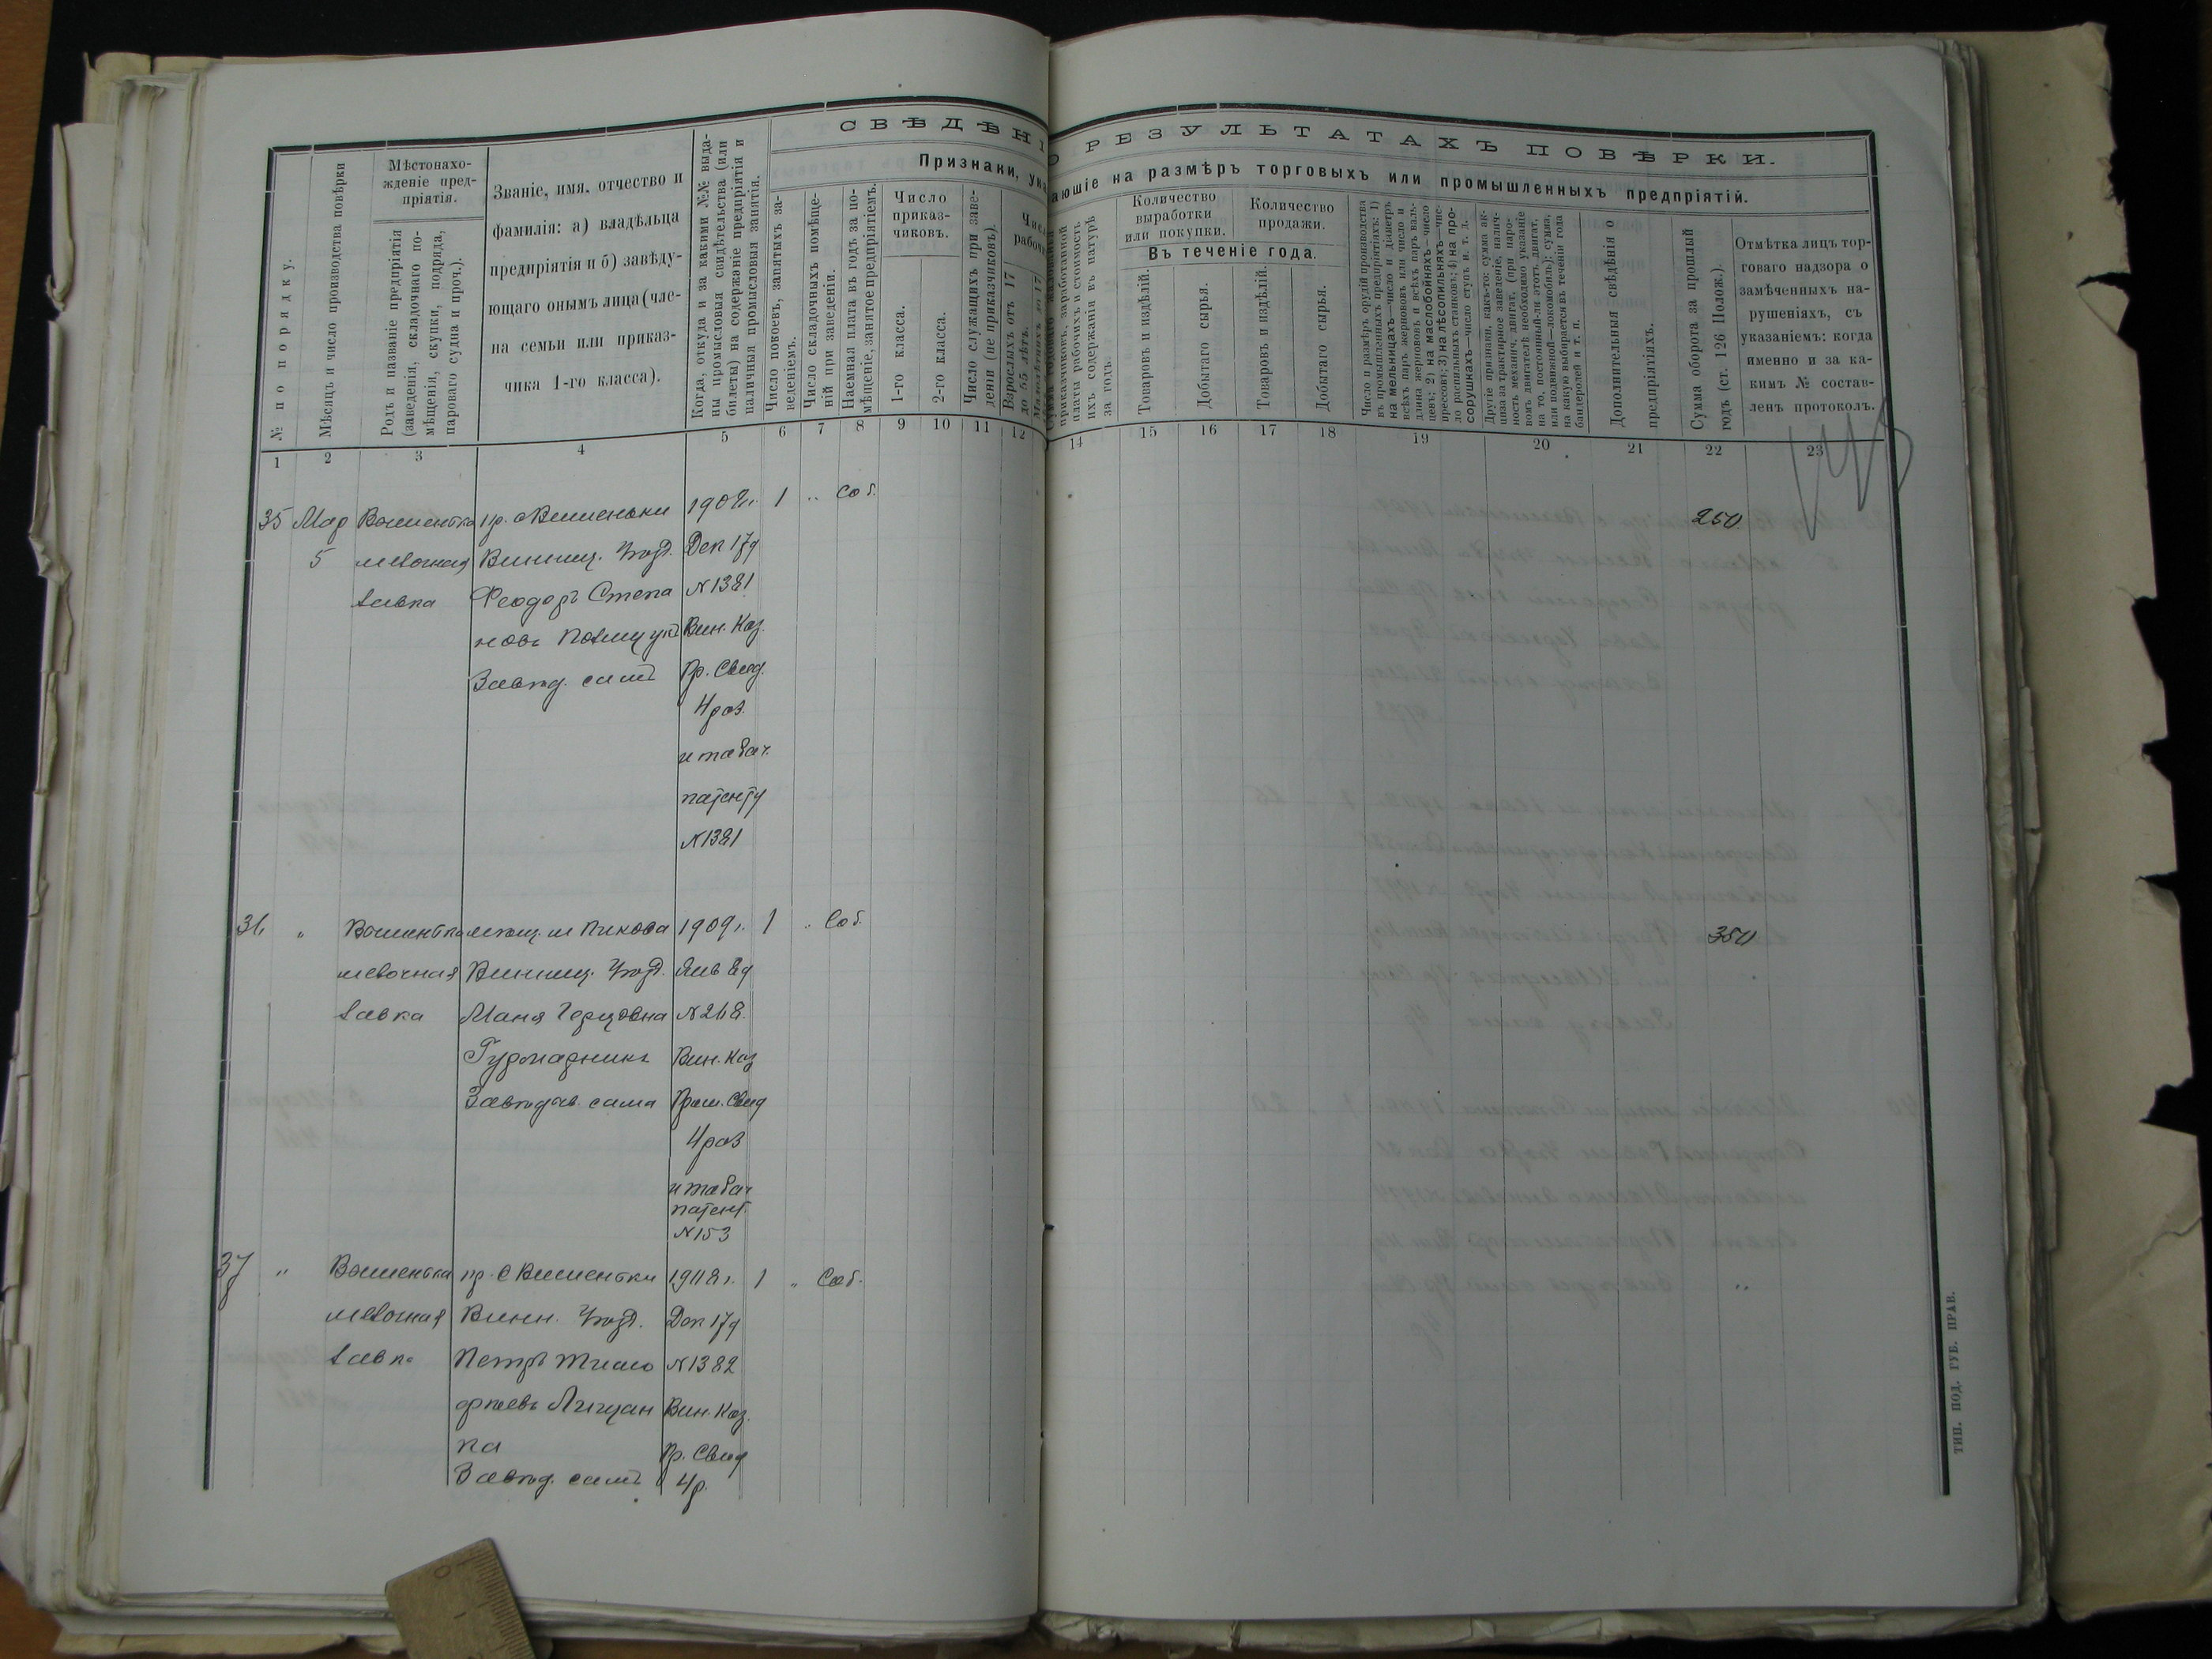 СВѢДѢНІ
О РЕЗУЛЬТАТАХЪ ПОВѢРКИ.
Признаки, ука
ающіе на размѣръ торговыхъ или промышленныхъ предпріятій.
№ по порядку.
Мѣсяцъ и число производства повѣрки
Мѣстонахо-
жденіе пред-
пріятія.
Родъ и названіе предпріятія
(заведенія, складочнаго по-
мѣщенія, скупки, подряда,
пароваго судна и проч.).
Званіе, имя, отчество и
фамилія: а) владѣльца
предпріятія и б) завѣду-
ющаго онымъ лица (чле-
на семьи или приказ-
чика 1-го класса).
Когда, откуда и за какими №№ выда-
ны промысловыя свидѣтельства (или
билеты) на содержаніе предпріятія и
наличныя промысловыя занятія.
Число покоевъ, занятыхъ за-
веденіемъ.
Число складочныхъ помѣще-
ній при заведеніи.
Наемная плата въ годъ за по-
мѣщеніе, занятое предпріятіемъ.
Число
приказ-
чиковъ.
1-го класса.
2-го класса.
Число служащихъ при заве-
деніи (не приказчиковъ).
Взрослыхъ отъ 17
до 65 лѣтъ.
приказчиковъ, заработанной
платы рабочихъ и стоимость
ихъ содержанія въ натурѣ
за годъ.
Количество
выработки
или покупки.
Количество
продажи.
Въ теченіе года.
Товаровъ и издѣлій.
Добытаго сырья.
Товаровъ и издѣлій.
Добытаго сырья.
Число и размѣръ орудій производства
въ промышленныхъ предпріятіяхъ: 1)
на мельницахъ—число и діаметръ
всѣхъ паръ жерновъ или число и
длина жерновъ и всѣхъ паръ валь-
цевъ; 2) на маслобойняхъ—число
прессовъ; 3) на лѣсопильняхъ—чис-
ло распильныхъ станковъ; 4) на про-
сорушкахъ—число ступъ и т. д.
Другіе признаки, какъ-то: сумма ак-
циза за трактирное заведеніе, налич-
ность механич. двигат., при паро-
вомъ двигателѣ необходимо указаніе
на то, постоянный-ли этотъ двигат.
или подвижной—локомобиль); сумма,
на какую выбирается въ теченіи года
бандеролей и т. п.
Дополнительныя свѣдѣнія о
предпріятіяхъ.
Сумма оборота за прошлый
годъ (ст. 126 Полож.).
Отмѣтка лицъ тор-
говаго надзора о
замѣченныхъ на-
рушеніяхъ, съ
указаніемъ: когда
именно и за ка-
кимъ № состав-
ленъ протоколъ.
1 2 3 4 5 6 7 8 9 10 11 12 14 15 16 17 18 19 20 21 22 23
35 Мар Вошентка кр. с Вишеньки 1908г. 1 „ Соб. 250
5 мелочная Винниц. Уѣзд. Дек 17д
лавка Феодоръ Степа N 1381
новъ Вин. Каз.
Завѣд. самъ Пр. Свид.
4 раз.
и табач.
патенту
N 1381
36 „ мѣщ. м Пикова 1909г. 1 „ Соб. 350
мелочная Винниц. Уѣзд. Янв 8д
лавка Маня Герцовна N 268.
Вин. Каз
Завѣдыв. сама Пром. Свид
4 раз
и табач
патент.
N 153
37 „ кр. с Вишентки 1908г. 1 „ Соб.
мелочная Винн. Уѣзд. Дек 17д
лавка Петръ Тимо N 1382
фѣевъ Лищан Вин. Каз.
ка Пр. Свид
Завѣд. самъ 4 р.
ТИП. ПОД. ГУБ. ПРАВ.